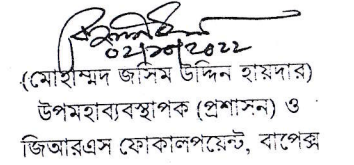 ০২/১০/২০২২
(মোহাম্মদ জসিম উদ্দিন হায়দার)
উপমহাব্যবস্থাপক (প্রশাসন) ও
জিআরএস ফোকালপয়েন্ট, বাপেক্স